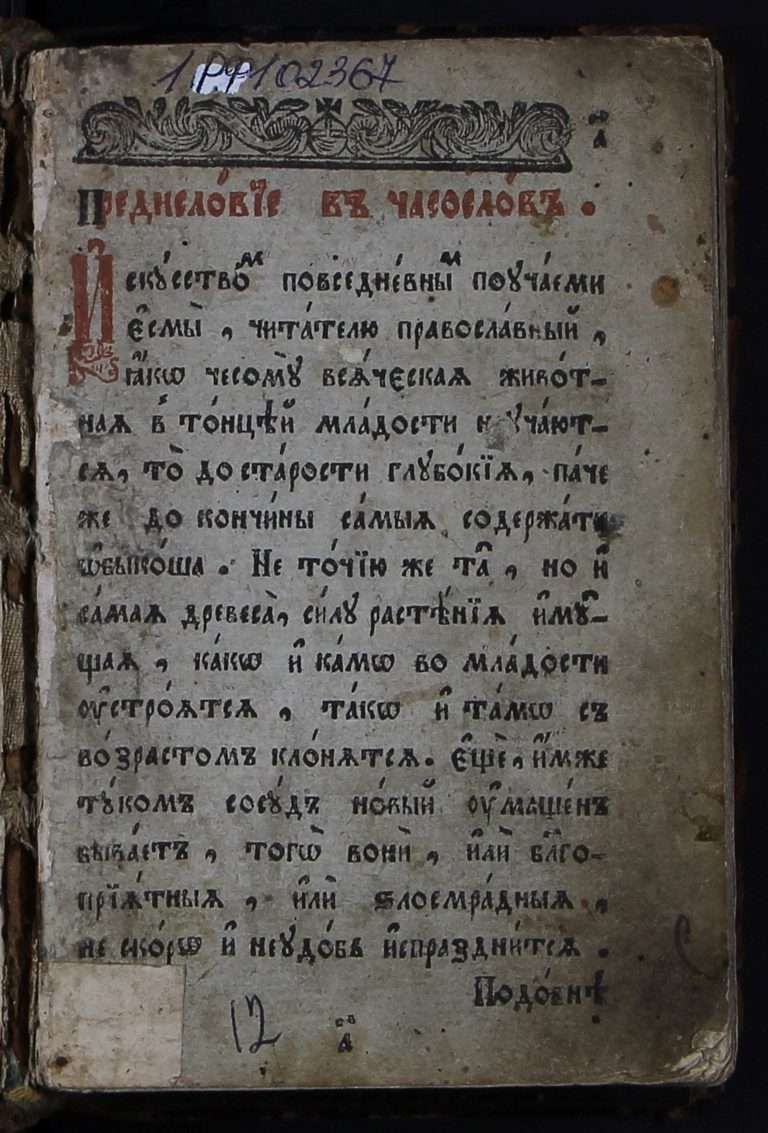 1РФ102367
а҃
Предисло́вїе въ часосло́въ .
И҆ску́сствоⷨ повседне́вныⷨ поуча́еми
є҆смы̀ , чита́телю правосла́вный ,
ꙗ҆́кѡ чесомꙋ̀ всѧ́ческаѧ живѡ́т-
наѧ в то́нцѣй мла́дости науча́ют-
сѧ, то̀ до ста́рости глубо́кїѧ, па́че
же до кончи́ны са́мыѧ содержа́ти
ѡ҆быко́ша . Не то́чїю же та̑ , но и҆
са́маѧ древеса̀, си́лу расте́нїѧ и҆мꙋ́-
щаѧ , ка́кѡ и҆ ка́мѡ во мла́дости
ᲂу҆строѧ́тсѧ , та́кѡ и҆ та́мѡ съ
во́зрастомъ кло́нѧтсѧ. Є҆щѐ, и҆́мже
тꙋ́комъ сосꙋ́дъ но́вый ᲂу҆маще́нъ
быва́етъ , тогѡ̀ вонѝ , и҆лѝ бл҃го-
прїѧ́тныѧ , и҆лѝ ѕлосмра́дныѧ ,
не ско́рѡ и҆ неудо́бь и҆спраздни́тсѧ .
Подо́бнѣ
12
а҃